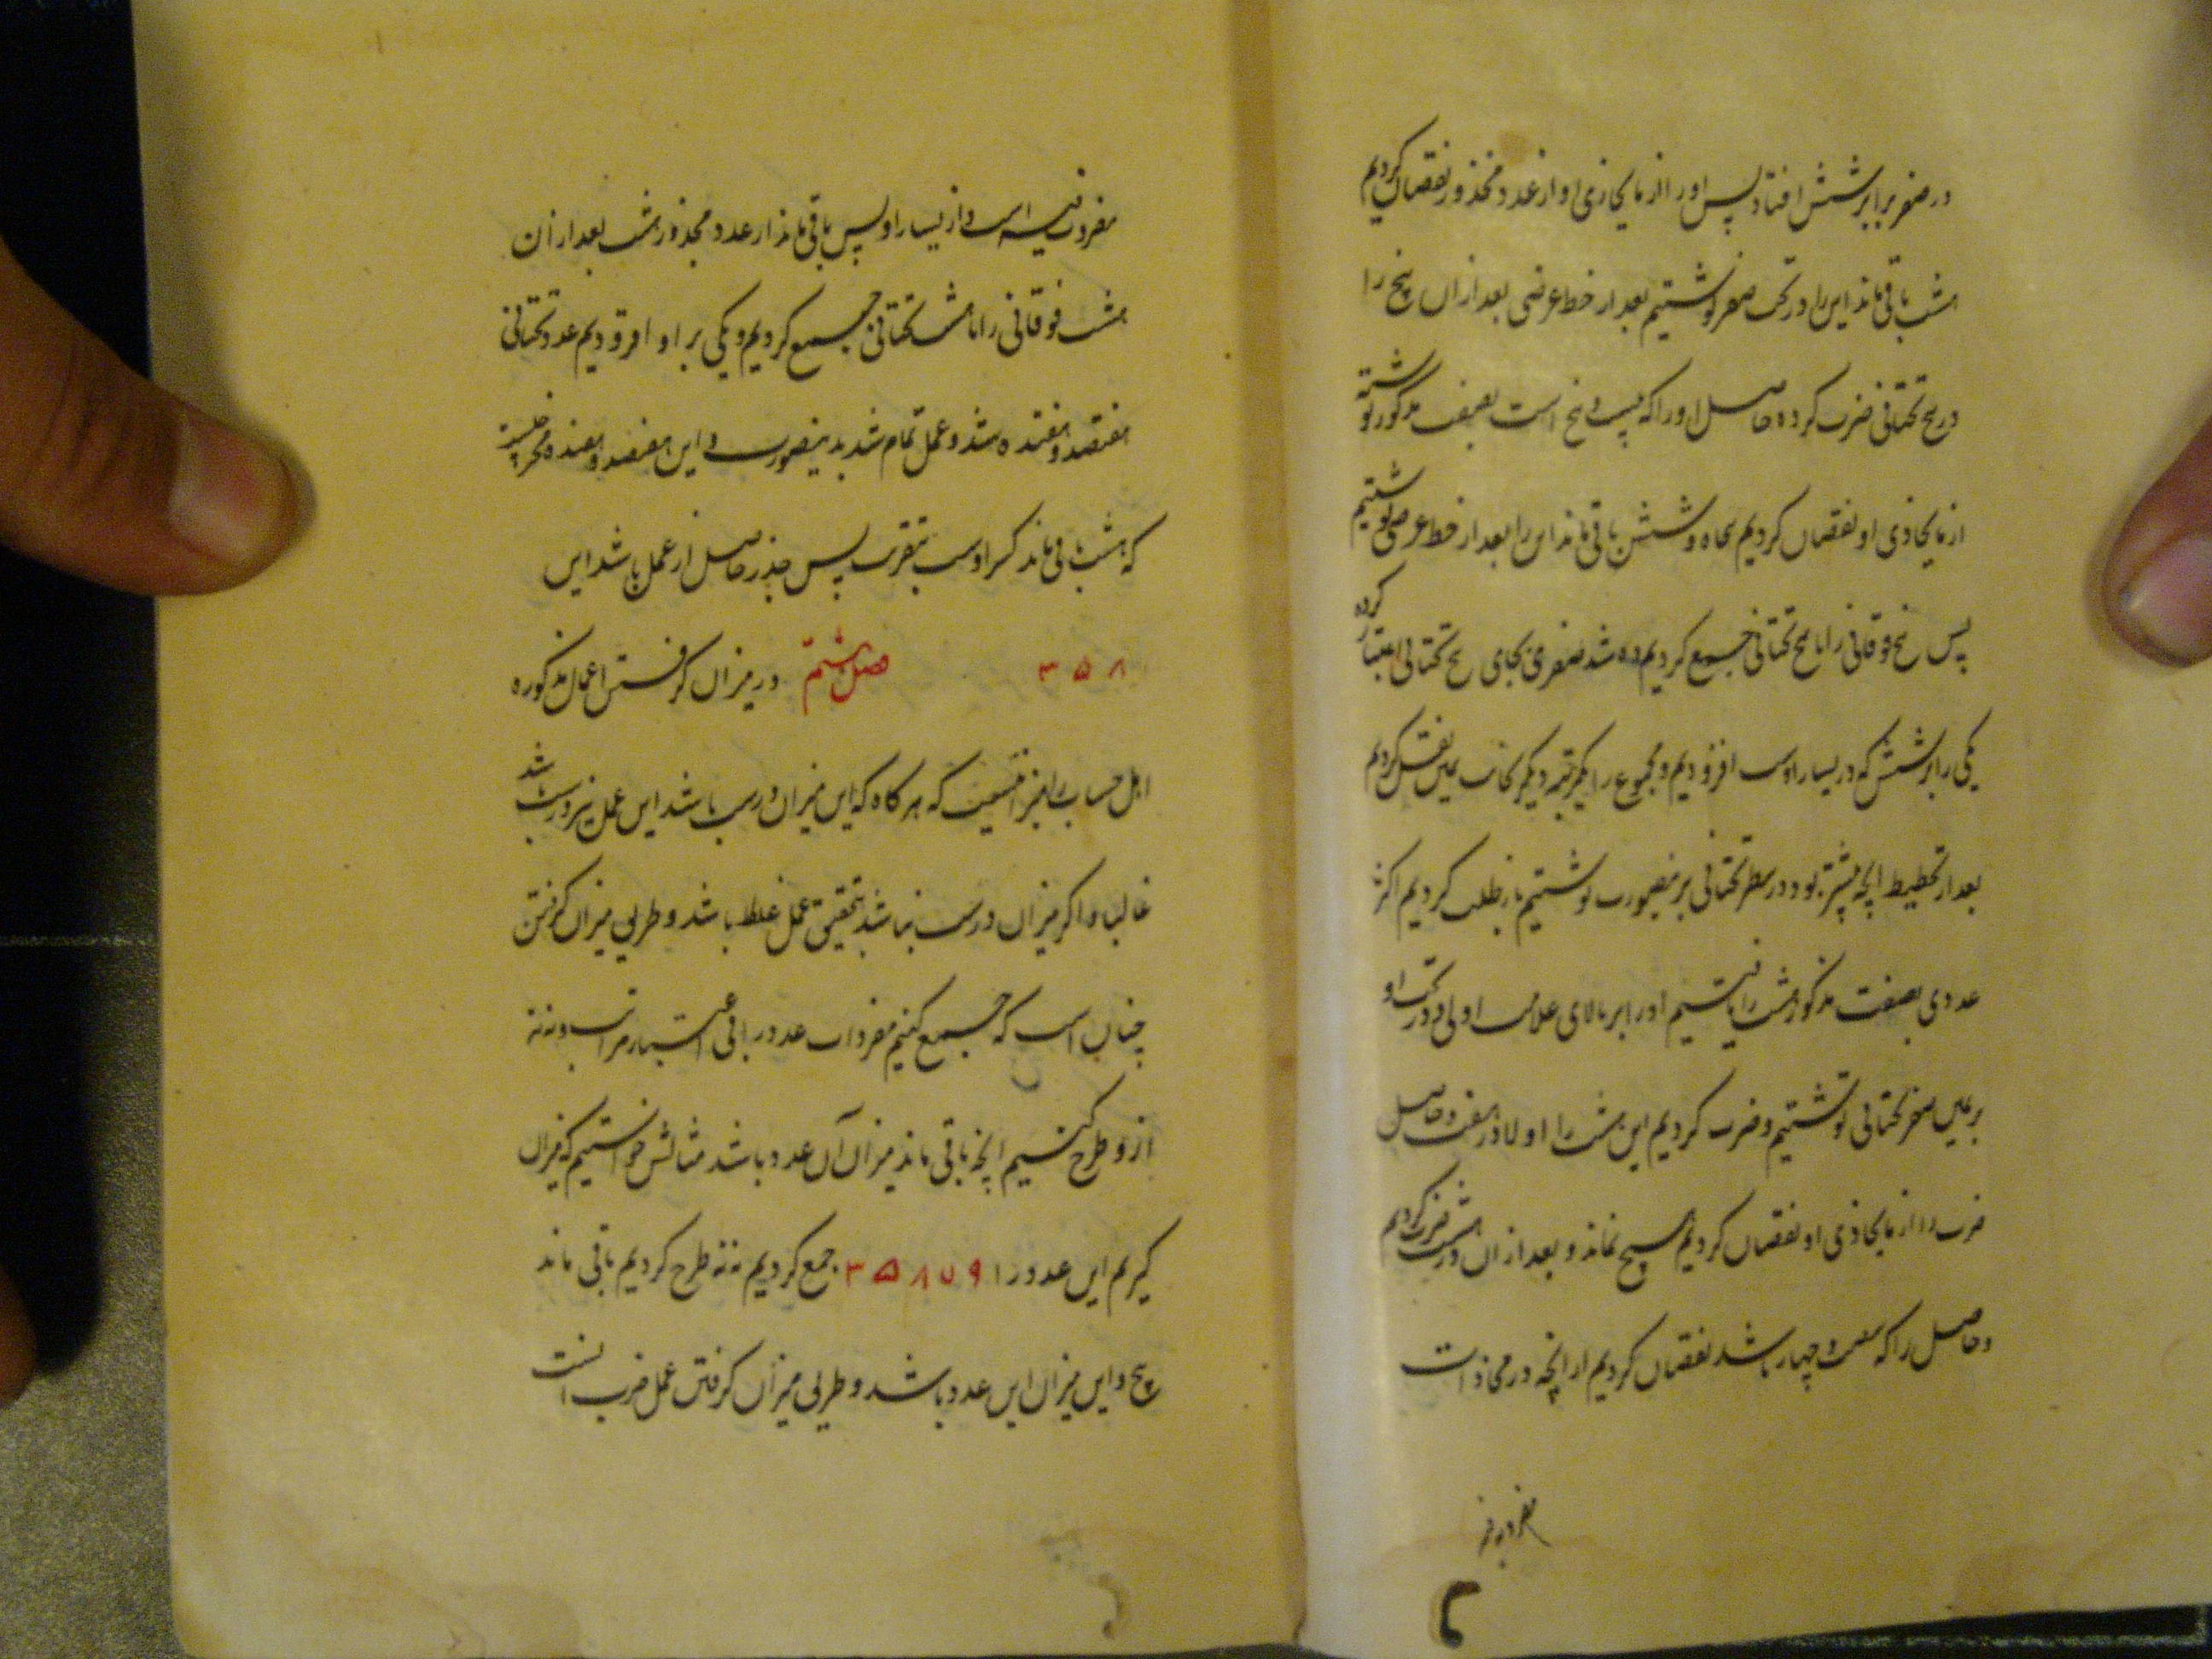 در صفر برابر شش افتاد پس او را از مایحاذی او از عدد مجذور نقصان کردیم
هشت باقی ماند این را در تحت صفر نوشتیم بعد از خط عرضی بعد از ان پنج را
در پنج تحتانی ضرب کرده حاصل او را که بیست و پنج است بصفت مذکور نوشته
از مایحاذی او نقصان کردیم پنجاه و شش باقی ماند این را بعد از خط عرضی نوشتیم
پس پنج فوقانی را با پنج تحتانی جمع کردیم ده شد صفری بجای پنج تحتانی اعتبار کرده
یکی را بر شش که در یسار اوست افزودیم و مجموع را یکمرتبه دیگر بجانب یمین نقل کردیم
بعد از تخطیط انچه پیشتر بود در سطر تحتانی برینصورت نوشتیم باز طلب کردیم اکثر
عددی بصفت مذکور هشت را یافتیم او را بر بالای علامت اولی و در تحت او
بر یمین صفر تحتانی نوشتیم و ضرب کردیم این هشت را اولا در هفت و حاصل
ضرب را از مایحاذی او نقصان کردیم هیچ نماند و بعد از ان در هشت ضرب کردیم
و حاصل را که شصت و چهار باشد نقصان کردیم از انچه در محاذات
مفروب فیه است و از یسار او پس باقی ماند از عدد مجذور هشت بعد از ان
هشت فوقانی را با هشت تحتانی جمع کردیم و یکی بر او افزودیم عدد تحتانی
هفتصد و هفتده شد و عمل تمام شد بدینصورت و این هفتصد و هفده مخرجیست
که هشت باقی ماند کسر اوست بتقریب پس جذر حاصل از عمل باشد این
۳۵۸ فصل هشتم در میزان گرفتن اعمال مذکوره
اهل حساب را میزانیست که هر گاه که این میزان درست باشد این عمل نیز درست باشد
غالبا و اگر میزان درست نباشد بتحقیق عمل غلط باشد و طریق میزان گرفتن
چنان است که جمع کنیم مفردات عدد را بی اعتبار مراتب و نه نه
از و طرح کنیم انچه باقی ماند میزان آن عدد باشد مثالش خواستیم که میزان
گیریم این عدد را ۳۵۸۷۹ جمع کردیم نه نه طرح کردیم باقی ماند
پنج و این میزان این عدد باشد و طریق میزان گرفتن عمل ضرب انست